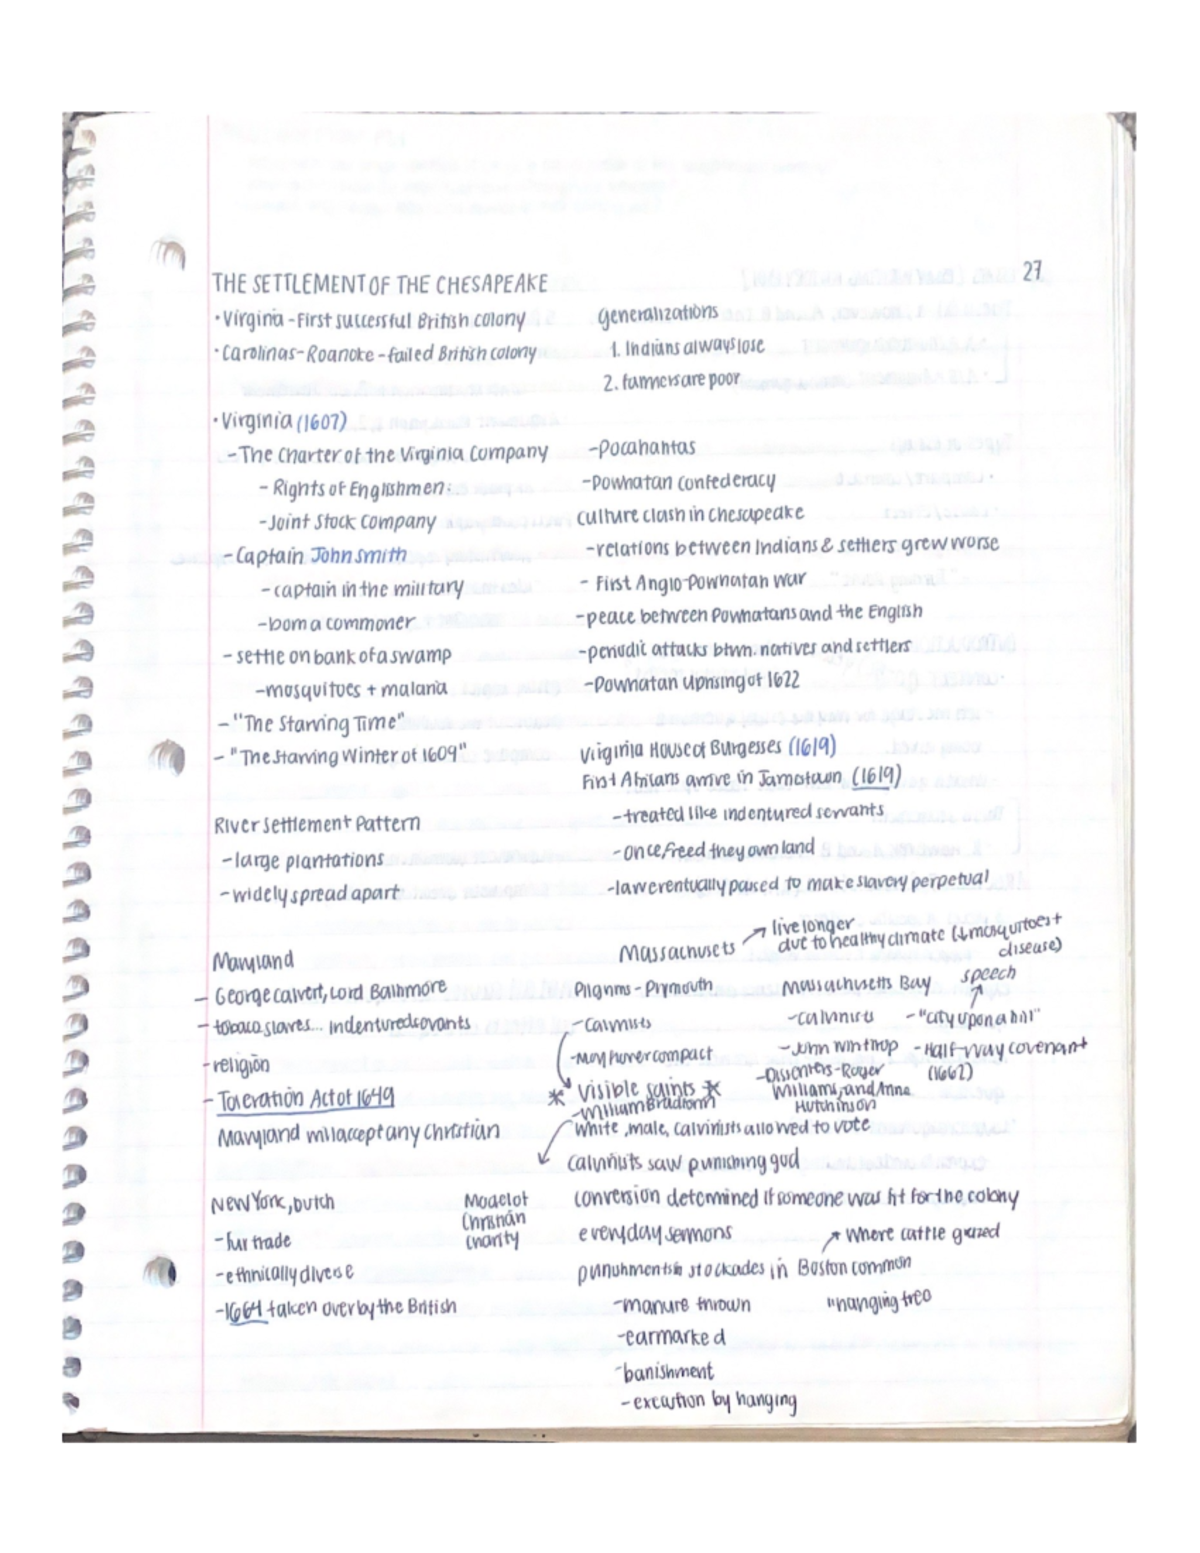 27
THE SETTLEMENT OF THE CHESAPEAKE
• Virgina - First successful British colony
• Carolinas - Roanoke - failed British colony
generalizations
1. Indians always lose
2. farmers are poor
• Virginia (1607)
- The Charter of the Virginia Company
- Rights of Englishmen:
- Joint Stock Company
- Captain John Smith
- captain in the military
- born a commoner
- settle on bank of a swamp
- mosquitoes + malaria
- "The Starving Time"
- "The Starving Winter of 1609"
- Pocahantas
- Powhatan Confederacy
culture clash in Chesapeake
- relations between Indians & settlers grew worse
- First Anglo-Powhatan War
- peace between Powhatans and the English
- periodic attacks btwn. natives and settlers
- Powhatan Uprising of 1622
Virginia House of Burgesses (1619)
First Africans arrive in Jamestown (1619)
- treated like indentured servants
- once freed they own land
- law eventually passed to make slavery perpetual
River Settlement Pattern
- large plantations
- widely spread apart
Maryland
- George Calvert, Lord Baltimore
- tobacco, slaves... indentured servants
- religion
- Toleration Act of 1649
Maryland will accept any Christian
New York, Dutch
- fur trade
- ethnically diverse
- 1664 taken over by the British
Massachusets → live longer
due to healthy climate (↓ mosquitoes +
disease)
Pilgrims - Plymouth
- Calvinists
- Mayflower compact
* Visible saints *
- William Bradform
White, male, calvinists allowed to vote
Massachusetts Bay
- calvinists
- John Winthrop
- Dissenters - Roger
Williams, and Anne
Hutchinson
speech
- "city upon a hill"
- Half-Way covenant
(1662)
Calvinists saw punishing god
Model of
Christian
Charity
conversion determined if someone was fit for the colony
everyday sermons
punishments in stockades in Boston common
→ Where cattle grazed
"hanging tree
- manure thrown
- earmarked
- banishment
- execution by hanging